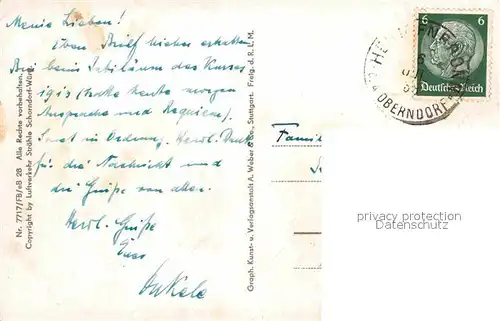 Meine Lieben!
Euren Brief hierher erhalten.
Bin beim Jubiläum des Kurses
(hatte heute morgen
Ansprache und Requiem).
Sonst in Ordnung. Herzl. Dank
für die Nachricht und
die Grüße von allen.
Herzl. Grüße
Euer
Onkele
Nr. 7717/FB/eB 28 Alle Rechte vorbehalten.
Copyright by Luftverkehr Strähle Schorndorf-Württ.
Graph. Kunst- u. Verlagsanstalt A. Weber & Co., Stuttgart. Freig. d. R.L.M.
6 6
Deutsches Reich
OBERNDORF
Famil
privacy protection
Datenschutz